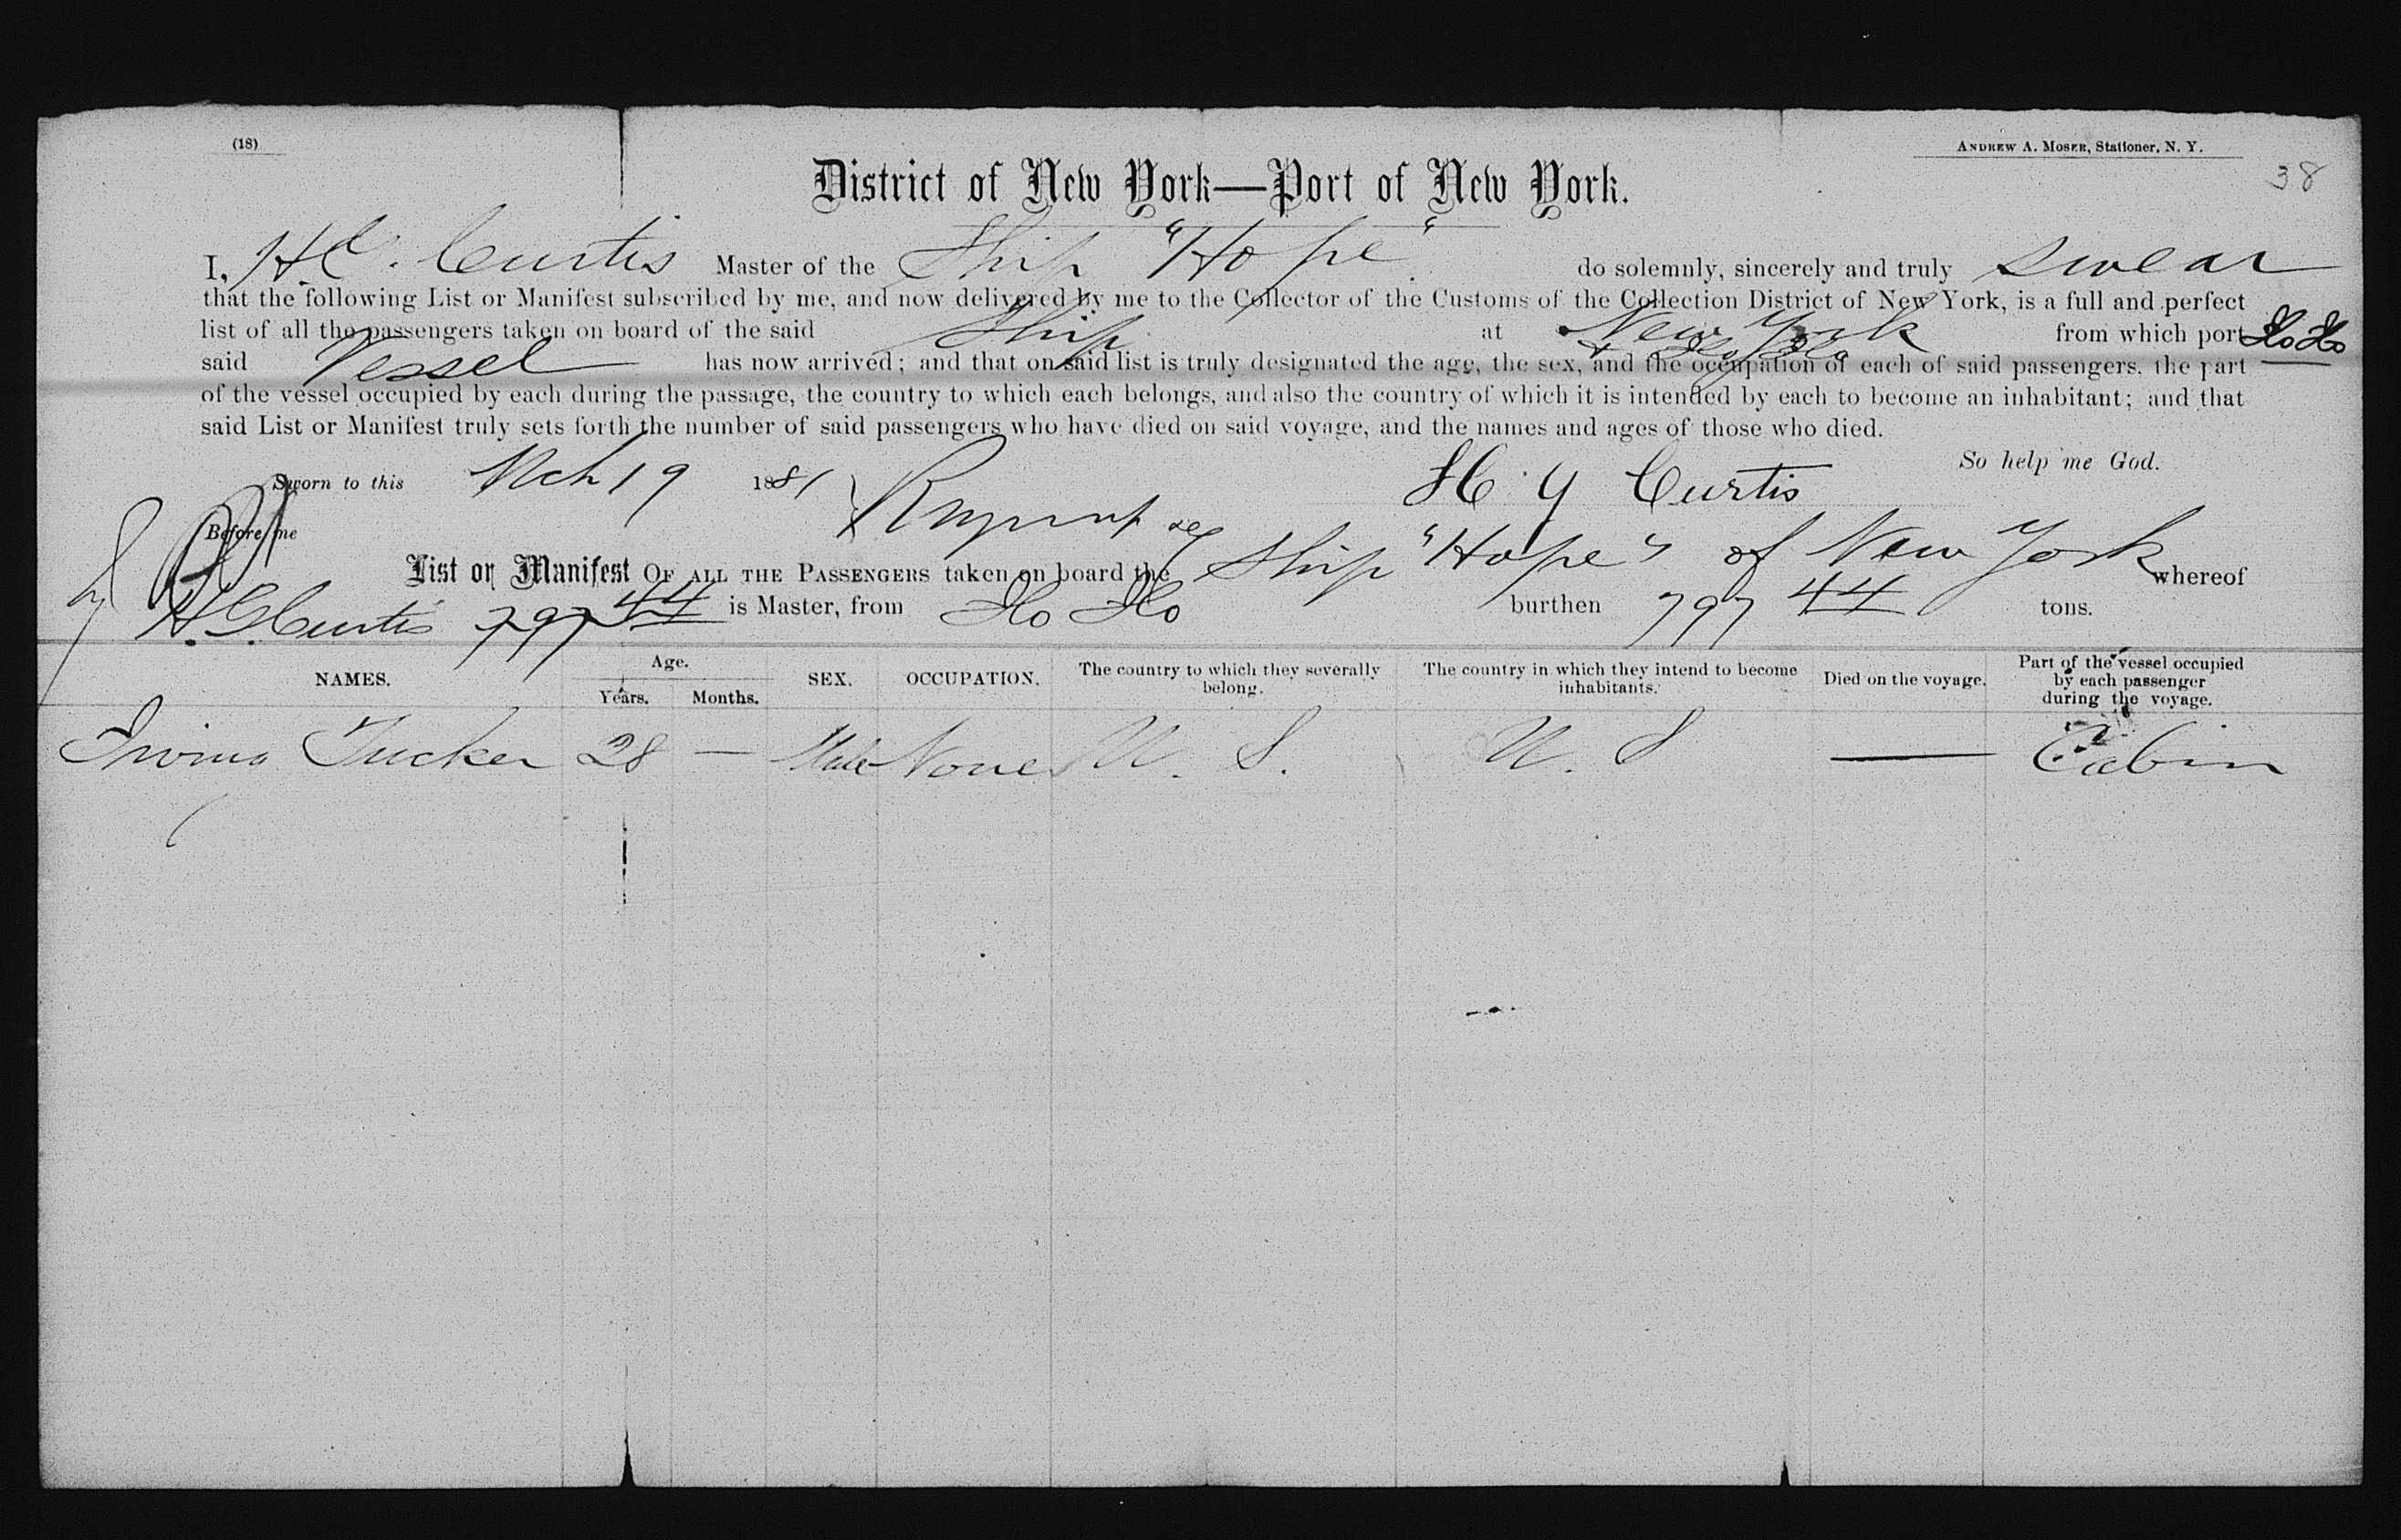 (18)
ANDREW A. MOSER, Stationer, N. Y.
38
District of New York—Port of New York.
I, H C. Curtis Master of the Ship "Hope" do solemnly, sincerely and truly swear
that the following List or Manifest subscribed by me, and now delivered by me to the Collector of the Customs of the Collection District of New York, is a full and perfect
list of all the passengers taken on board of the said Ship at New York from which port Ilo Ilo
said Vessel has now arrived; and that on said list is truly designated the age, the sex, and the occupation of each of said passengers, the part
of the vessel occupied by each during the passage, the country to which each belongs, and also the country of which it is intended by each to become an inhabitant; and that
said List or Manifest truly sets forth the number of said passengers who have died on said voyage, and the names and ages of those who died.
So help me God.
Sworn to this Mch 19 1881 H Curtis
Before me
List or Manifest OF ALL THE PASSENGERS taken on board the Ship "Hope" of New York whereof
H. G. Curtis 797 44 is Master, from Ilo Ilo burthen 797 44 tons.
NAMES. Age. Years. Months. SEX. OCCUPATION. The country to which they severally belong. The country in which they intend to become inhabitants. Died on the voyage. Part of the vessel occupied by each passenger during the voyage.
Irving Tucker 28 — Male None U. S. U. S — Cabin